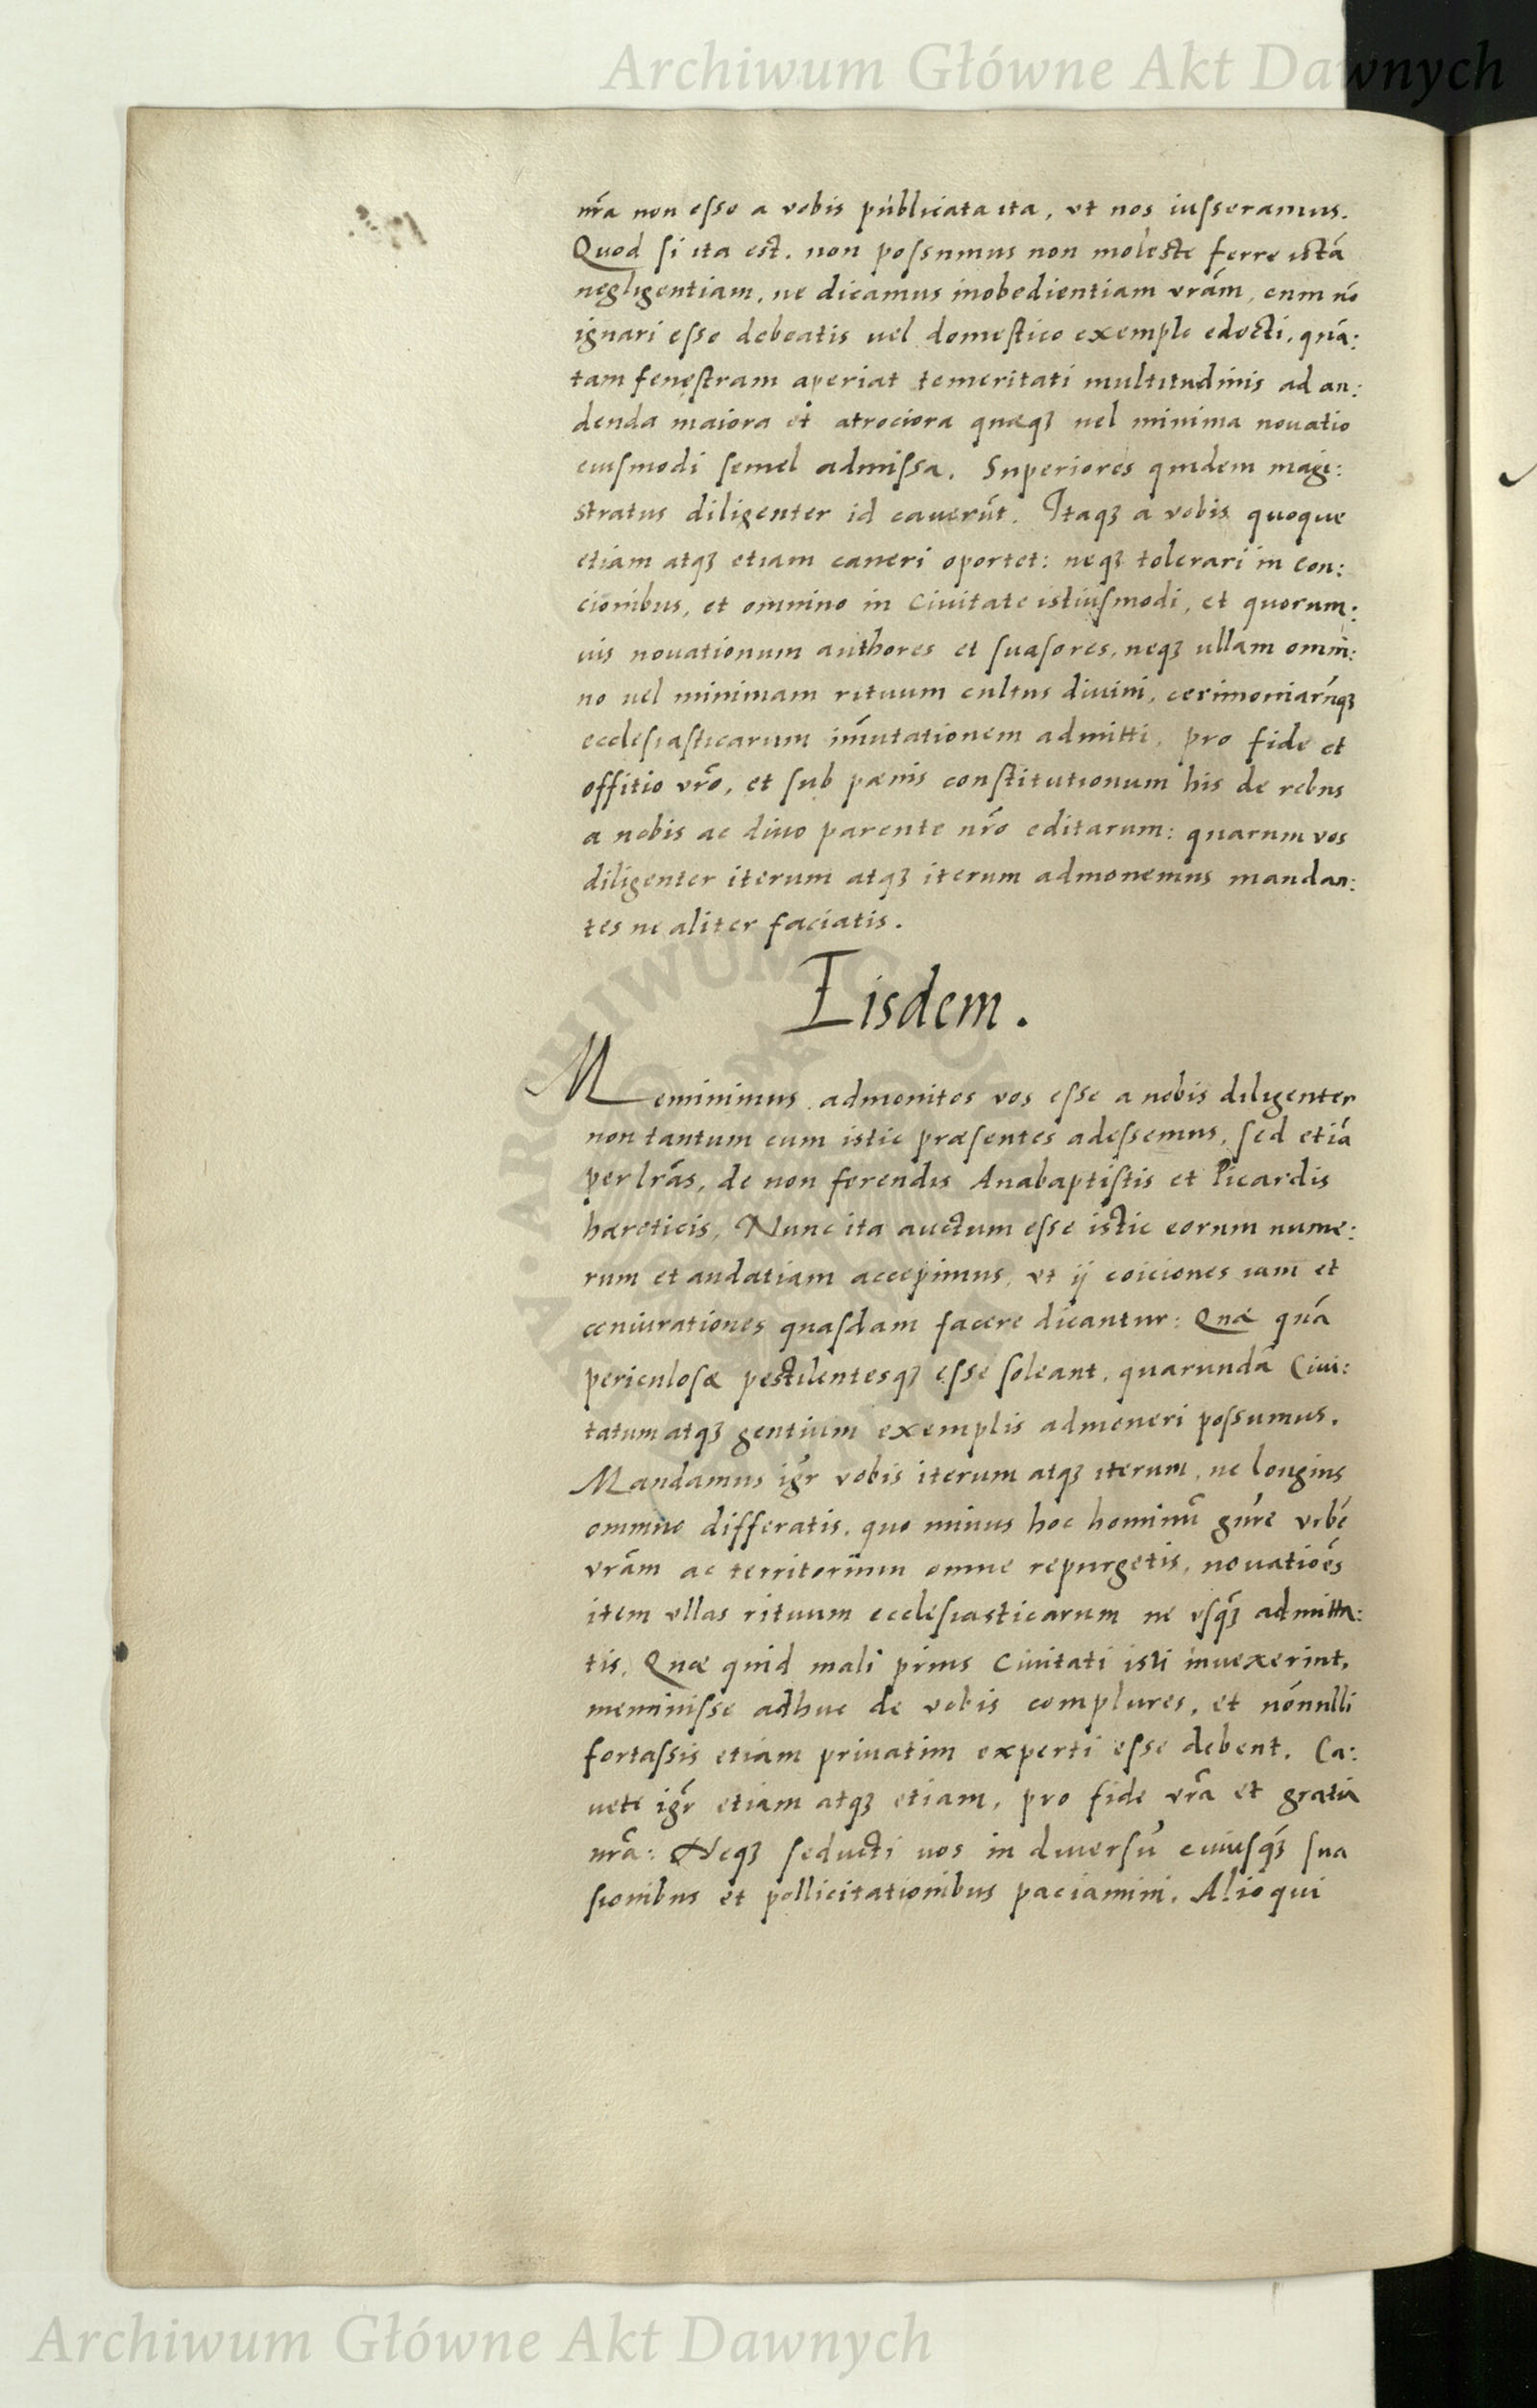 Archiwum Główne Akt Dawnych
nr̃a non esse a vobis publicata ita, vt nos iusseramus.
Quod si ita est. non possumus non moleste ferre istã
negligentiam, ne dicamus inobedientiam vrãm, cum nõ
ignari esse debeatis uel domestico exemplo edocti, quã:
tam fenestram aperiat temeritati multitudinis ad au:
denda maiora et atrociora quæqꝫ uel minima nouatio
eiusmodi semel admissa. Superiores quidem magi:
stratus diligenter id cauerũt. Itaqꝫ a vobis quoque
etiam atqꝫ etiam caueri oportet: neqꝫ tolerari in con:
cionibus, et omnino in Ciuitate istiusmodi, et quorum:
uis nouationum authores et suasores, neqꝫ ullam omni:
no uel minimam rituum cultus diuini, cerimoniarũqꝫ
ecclesiasticarum im̃utationem admitti, pro fide et
offitio vrõ, et sub pœnis constitutionum his de rebus
a nobis ac diuo parente nrõ editarum: quarum vos
diligenter iterum atqꝫ iterum admonemus mandan:
tes ne aliter faciatis.
Eisdem.
Meminimus admonitos vos esse a nobis diligenter
non tantum cum istic præsentes adessemus, sed etiã
per lrãs, de non ferendis Anabaptistis et Picardis
hæreticis, Nunc ita auctum esse istic eorum nume:
rum et audatiam accepimus, vt ij coiciones iam et
coniurationes quasdam facere dicantur: Quæ quã
periculosæ pestilentesqꝫ esse soleant, quarundã Ciui:
tatum atqꝫ gentium exemplis admoneri possumus.
Mandamus igr̃ vobis iterum atqꝫ iterum, ne longius
omnino differatis, quo minus hoc hominũ gñre vrbẽ
vrãm ac territorium omne repurgetis, nouatioẽs
item vllas rituum ecclesiasticarum ne vsqꝫ̃ admitta:
tis, Quæ quid mali prius Ciuitati isti inuexerint,
meminisse adhuc de vobis complures, et nõnulli
fortassis etiam priuatim experti esse debent. Ca:
uete igr̃ etiam atqꝫ etiam, pro fide vrã et gratia
nrã: Neqꝫ seducti uos in diuersũ cuiusqꝫ̃ sua
sionibus et pollicitationibus paciamini. Alioqui
Archiwum Główne Akt Dawnych